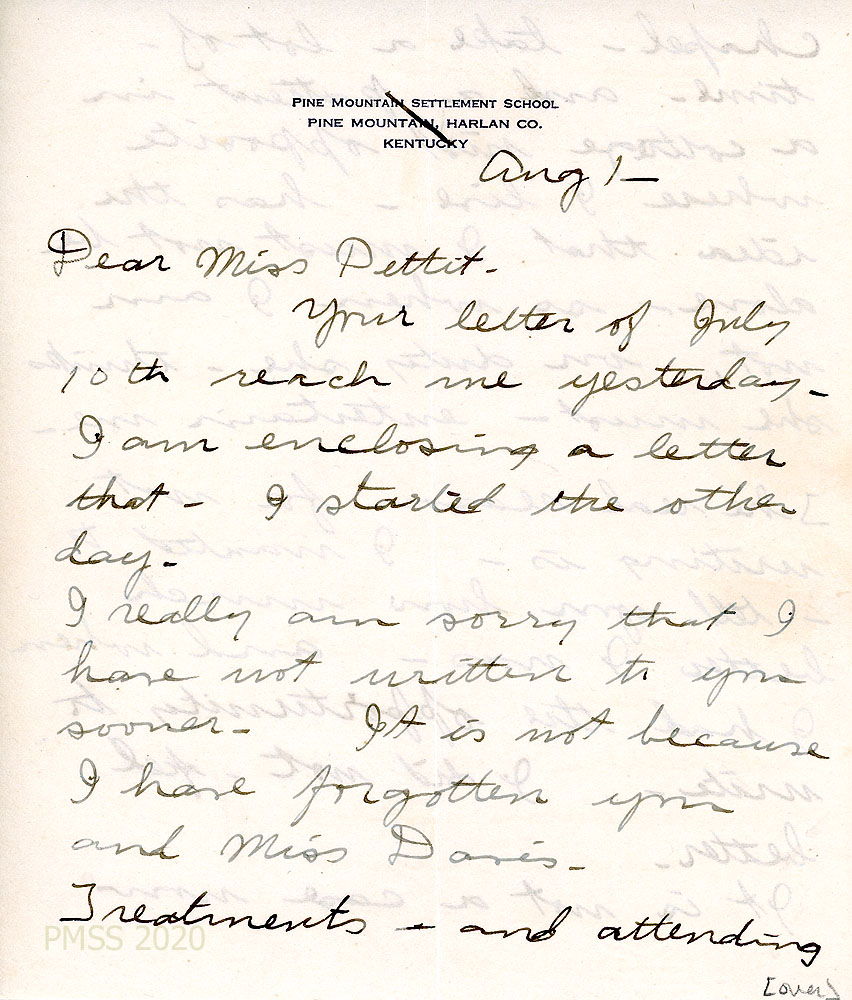 PINE MOUNTAIN SETTLEMENT SCHOOL
PINE MOUNTAIN, HARLAN CO.
KENTUCKY
Aug 1 —
Dear Miss Pettit -
Your letter of July
10th reach me yesterday -
I am enclosing a letter
that - I started the other
day -
I really am sorry that I
have not written to you
sooner - It is not because
I have forgotten you
and Miss Davis -
Treatments - and attending
[over]
PMSS 2020